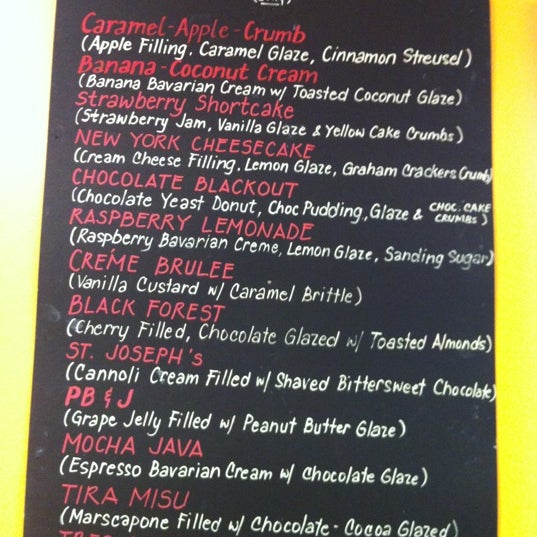 Caramel-Apple-Crumb
(Apple Filling, Caramel Glaze, Cinnamon Streusel)
Banana-Coconut Cream
(Banana Bavarian Cream w/ Toasted Coconut Glaze)
Strawberry Shortcake
(Strawberry Jam, Vanilla Glaze & Yellow Cake Crumbs)
NEW YORK CHEESECAKE
(Cream Cheese Filling, Lemon Glaze, Graham Crackers Crumb)
CHOCOLATE BLACKOUT
(Chocolate Yeast Donut, Choc Pudding, Glaze & CHOC. CAKE
CRUMBS)
RASPBERRY LEMONADE
(Raspberry Bavarian Creme, Lemon Glaze, Sanding Sugar)
CREME BRULEE
(Vanilla Custard w/ Caramel Brittle)
BLACK FOREST
(Cherry Filled, Chocolate Glazed w/ Toasted Almonds)
ST. JOSEPH's
(Cannoli Cream Filled w/ Shaved Bittersweet Chocolate)
PB & J
(Grape Jelly Filled w/ Peanut Butter Glaze)
MOCHA JAVA
(Espresso Bavarian Cream w/ Chocolate Glaze)
TIRA MISU
(Marscapone Filled w/ Chocolate-Cocoa Glazed)